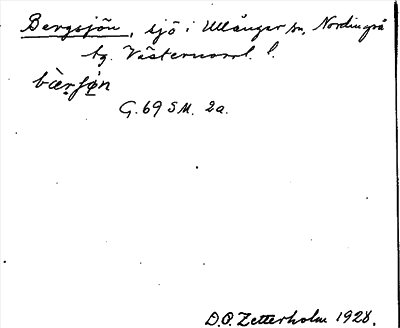 Bergsjön, sjö i Ullånger sn, Nordingrå
tg. Västernorrl. l.
bær̥ʃø̀n
G. 69 S M. 2a.
D.O. Zetterholm 1928.